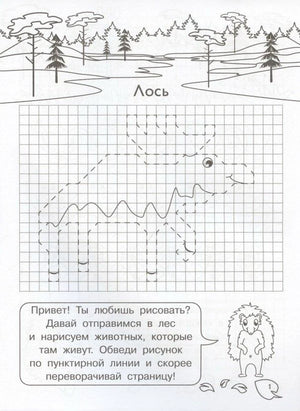 Лось
Привет! Ты любишь рисовать?
Давай отправимся в лес
и нарисуем животных, которые
там живут. Обведи рисунок
по пунктирной линии и скорее
переворачивай страницу!